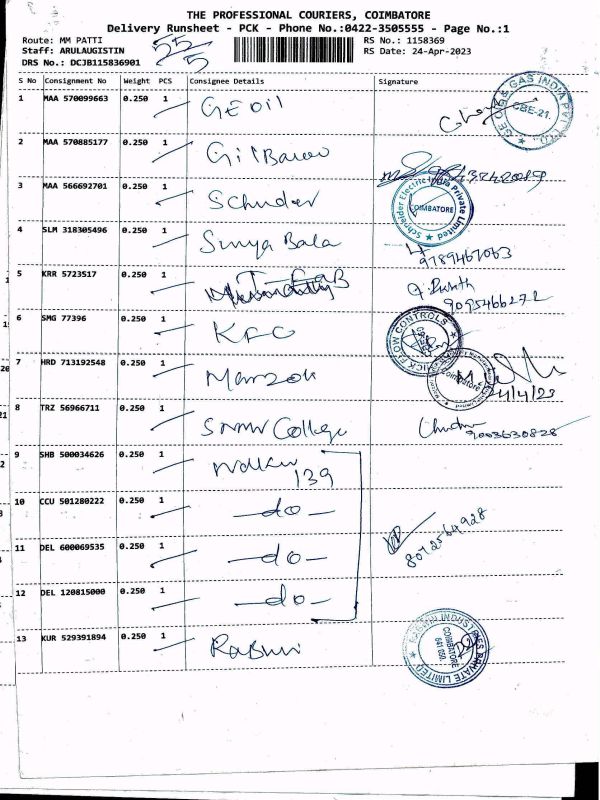 THE PROFESSIONAL COURIERS, COIMBATORE
Delivery Runsheet - PCK - Phone No.:0422-3505555 - Page No.:1
Route: MM PATTI
RS No.: 1158369
Staff: ARULAUGISTIN
RS Date: 24-Apr-2023
DRS No.: DCJB115836901
55/5
S No Consignment No Weight PCS Consignee Details Signature
1 MAA 570099663 0.250 1 GEOil
GEO OIL & GAS INDIA PVT LTD. CBE-21.
2 MAA 570885177 0.250 1
3 MAA 566692701 0.250 1 Schnder
Schneider Electric India Private Limited COIMBATORE
4 SLM 318305496 0.250 1 Surya Bala
9789467063
5 KRR 5723517 0.250 1
9095466272
6 SMG 77396 0.250 1 KFC
FLOW CONTROLS
7 HRD 713192548 0.250 1 Marzok
Coimbatore
24/4/23
8 TRZ 56966711 0.250 1 SNMV College
9003630828
9 SHB 500034626 0.250 1
139
10 CCU 501280222 0.250 1 —do—
11 DEL 600069535 0.250 1 —do—
8072564928
12 DEL 120815000 0.250 1 —do—
13 KUR 529391894 0.250 1
INDUSTRIES PRIVATE LIMITED COIMBATORE 641 050.